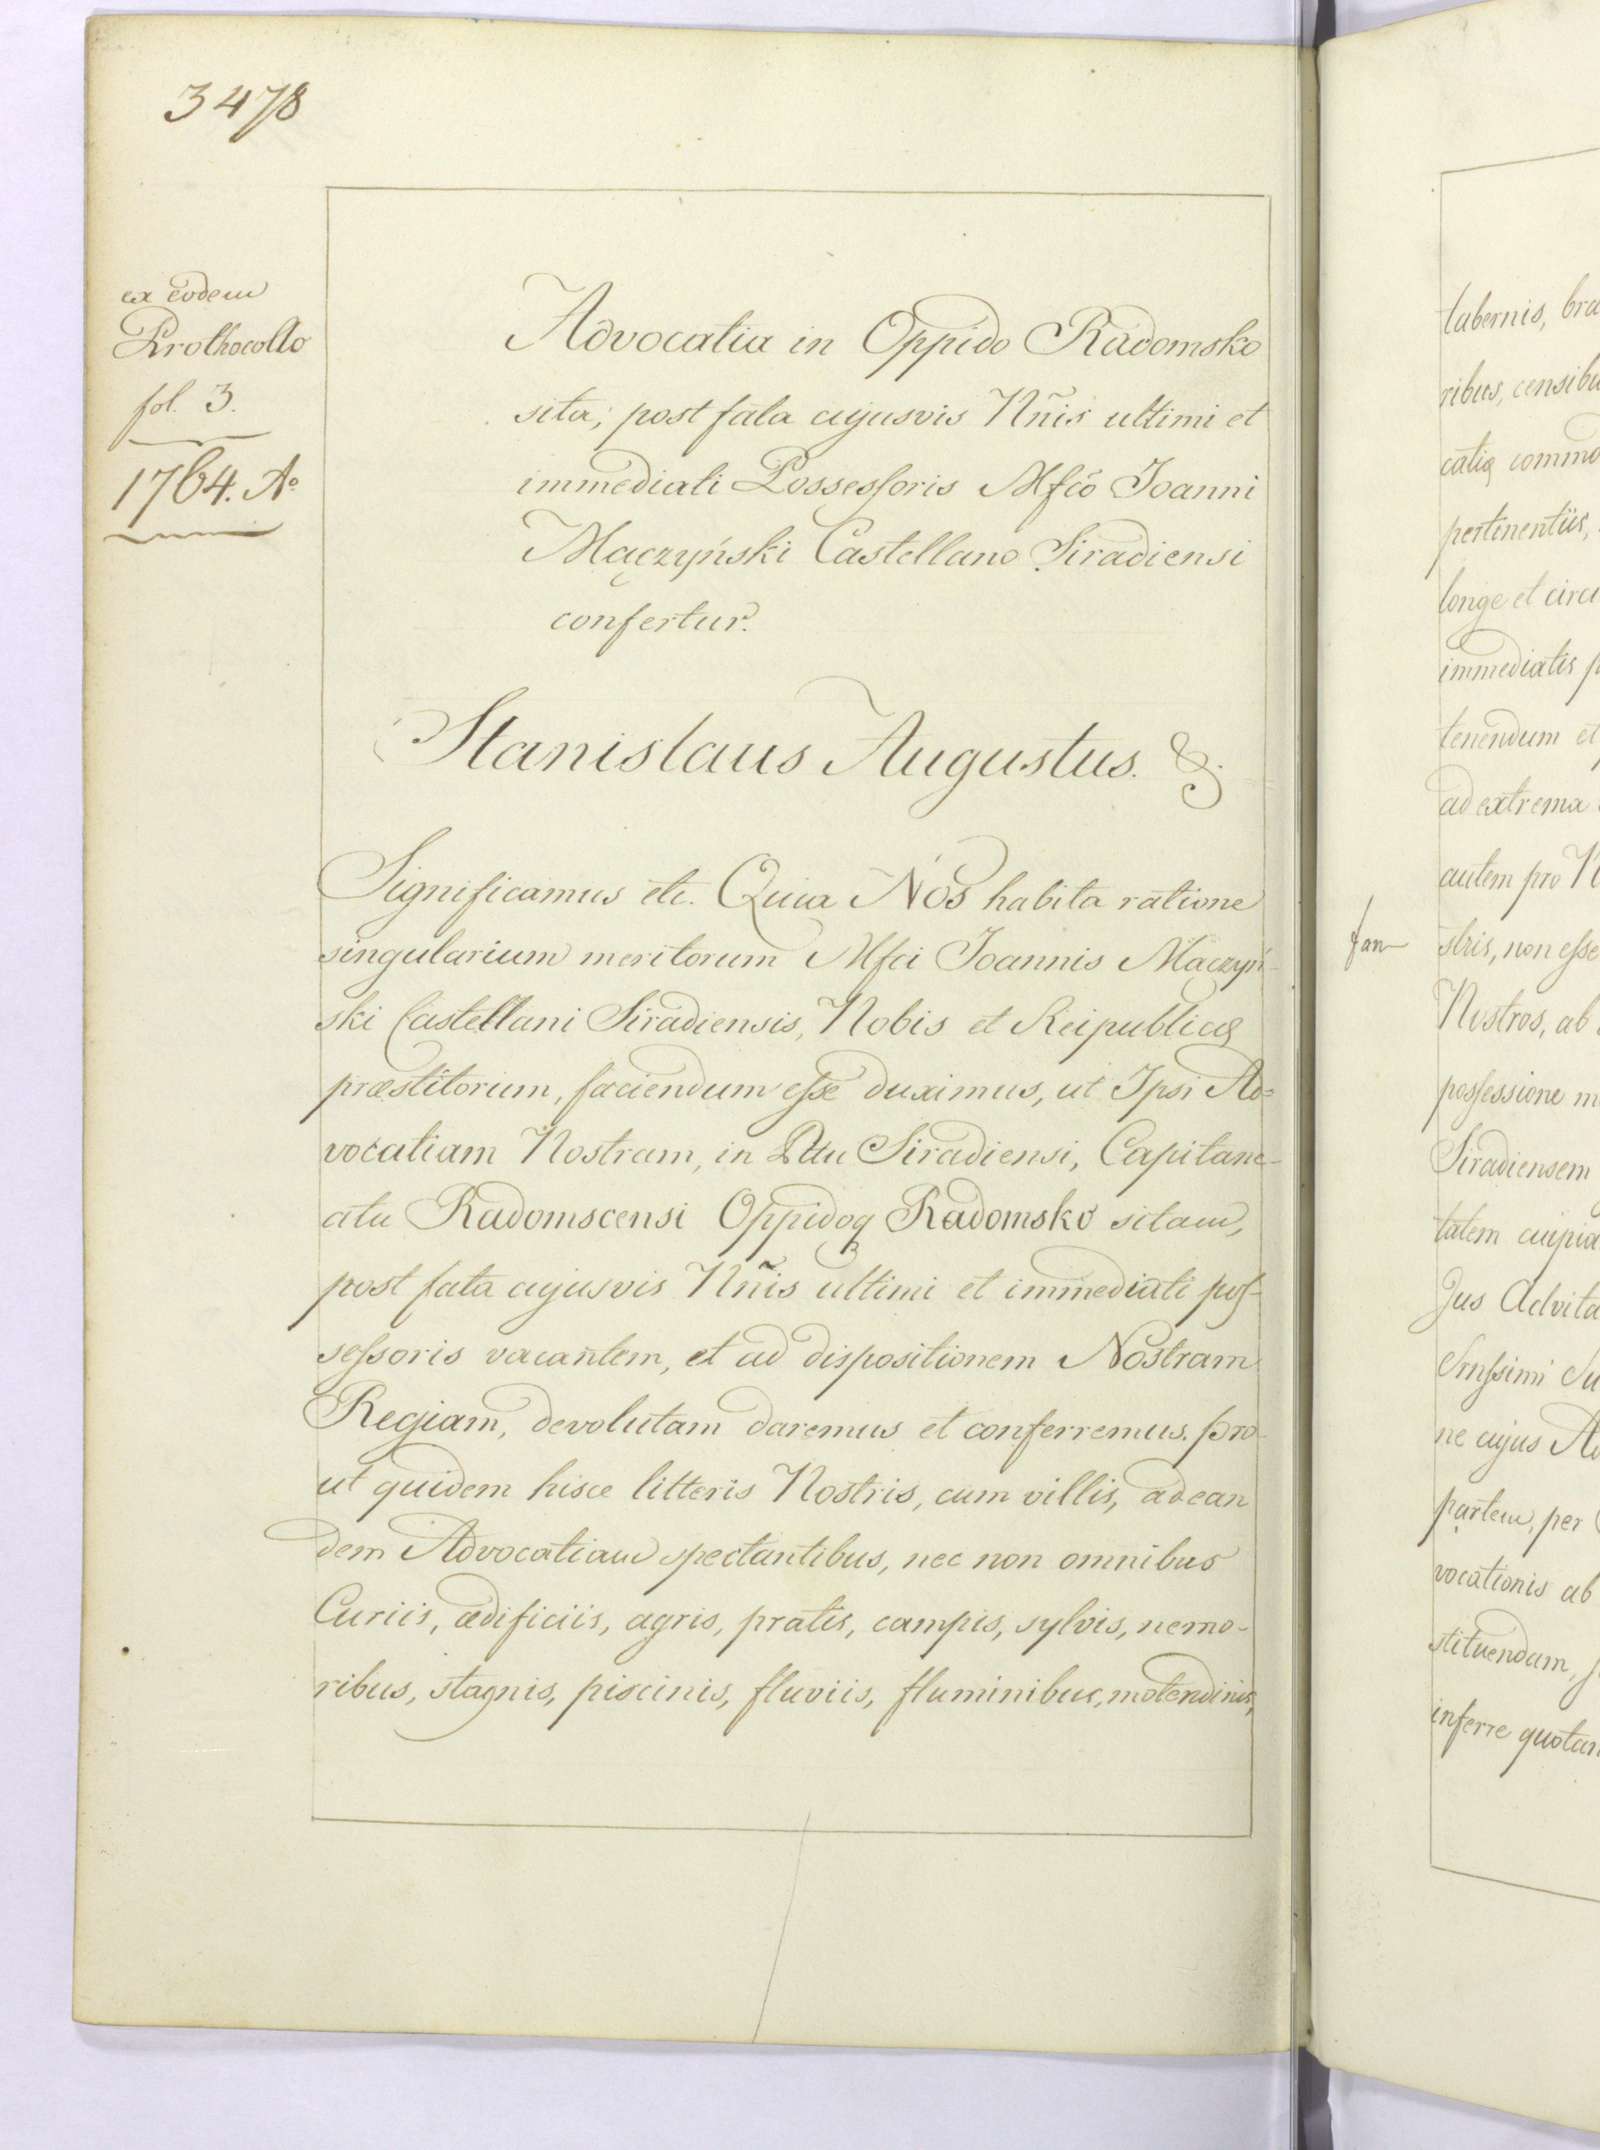 3478
ex eodem
Prothocollo
fol. 3.
1764. Aº
Advocatia in Oppido Radomsko
sita, post fata cujusvis Nñis ultimi et
immediati Possessoris Mfco Joanni
Mączyński Castellano Siradiensi
confertur.
Stanislaus Augustus. &.
Significamus etc. Quia Nos habita ratione
singularium meritorum Mfci Joannis Mączyń-
ski Castellani Siradiensis, Nobis et Reipublicæ
præstitorum, faciendum esse duximus, ut Ipsi Ad=
vocatiam Nostram, in Pttu Siradiensi, Capitane-
atu Radomscensi Oppidoq Radomsko sitam,
post fata cujusvis Nñis ultimi et immediati pos-
sessoris vacantem, et ad dispositionem Nostram
Regiam, devolutam daremus et conferremus. pro-
ut quidem hisce litteris Nostris, cum villis, ad ean
dem Advocatiam spectantibus, nec non omnibus
Curiis, ædificiis, agris, pratis, campis, sylvis, nemo-
ribus, stagnis, piscinis, fluviis, fluminibus, molendinis,
tabernis, bra
ribus, censibu
catiæ commo
pertinentiis,
longe et circu
immediatis p
tenendum et
ad extrema
autem pro N
fan
stris, non esse
Nostros, ab
possessione m
Siradiensem
tatem cuipia
Jus Advita
Smssimi Su
ne cujus Ad
partem, per
vocationis ab
stituendam,
inferre quotan